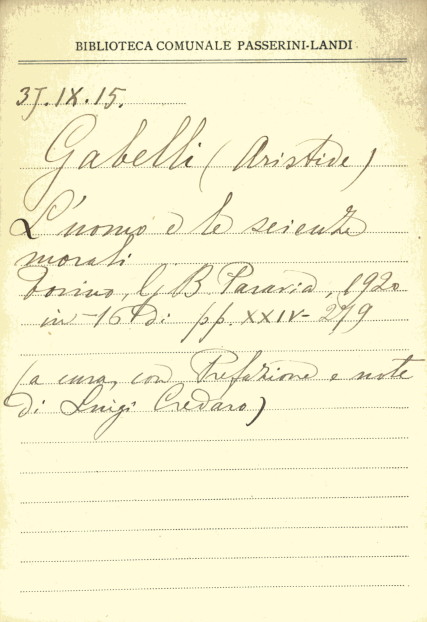 BIBLIOTECA COMUNALE PASSERINI-LANDI
3J.IX.15.
Gabelli (Aristide)
L'uomo e le scienze
morali
Torino, G B Paravia, 1920
in-16° di pp. XXIV-279
(a cura, con Prefazione e note
di Luigi Credaro)